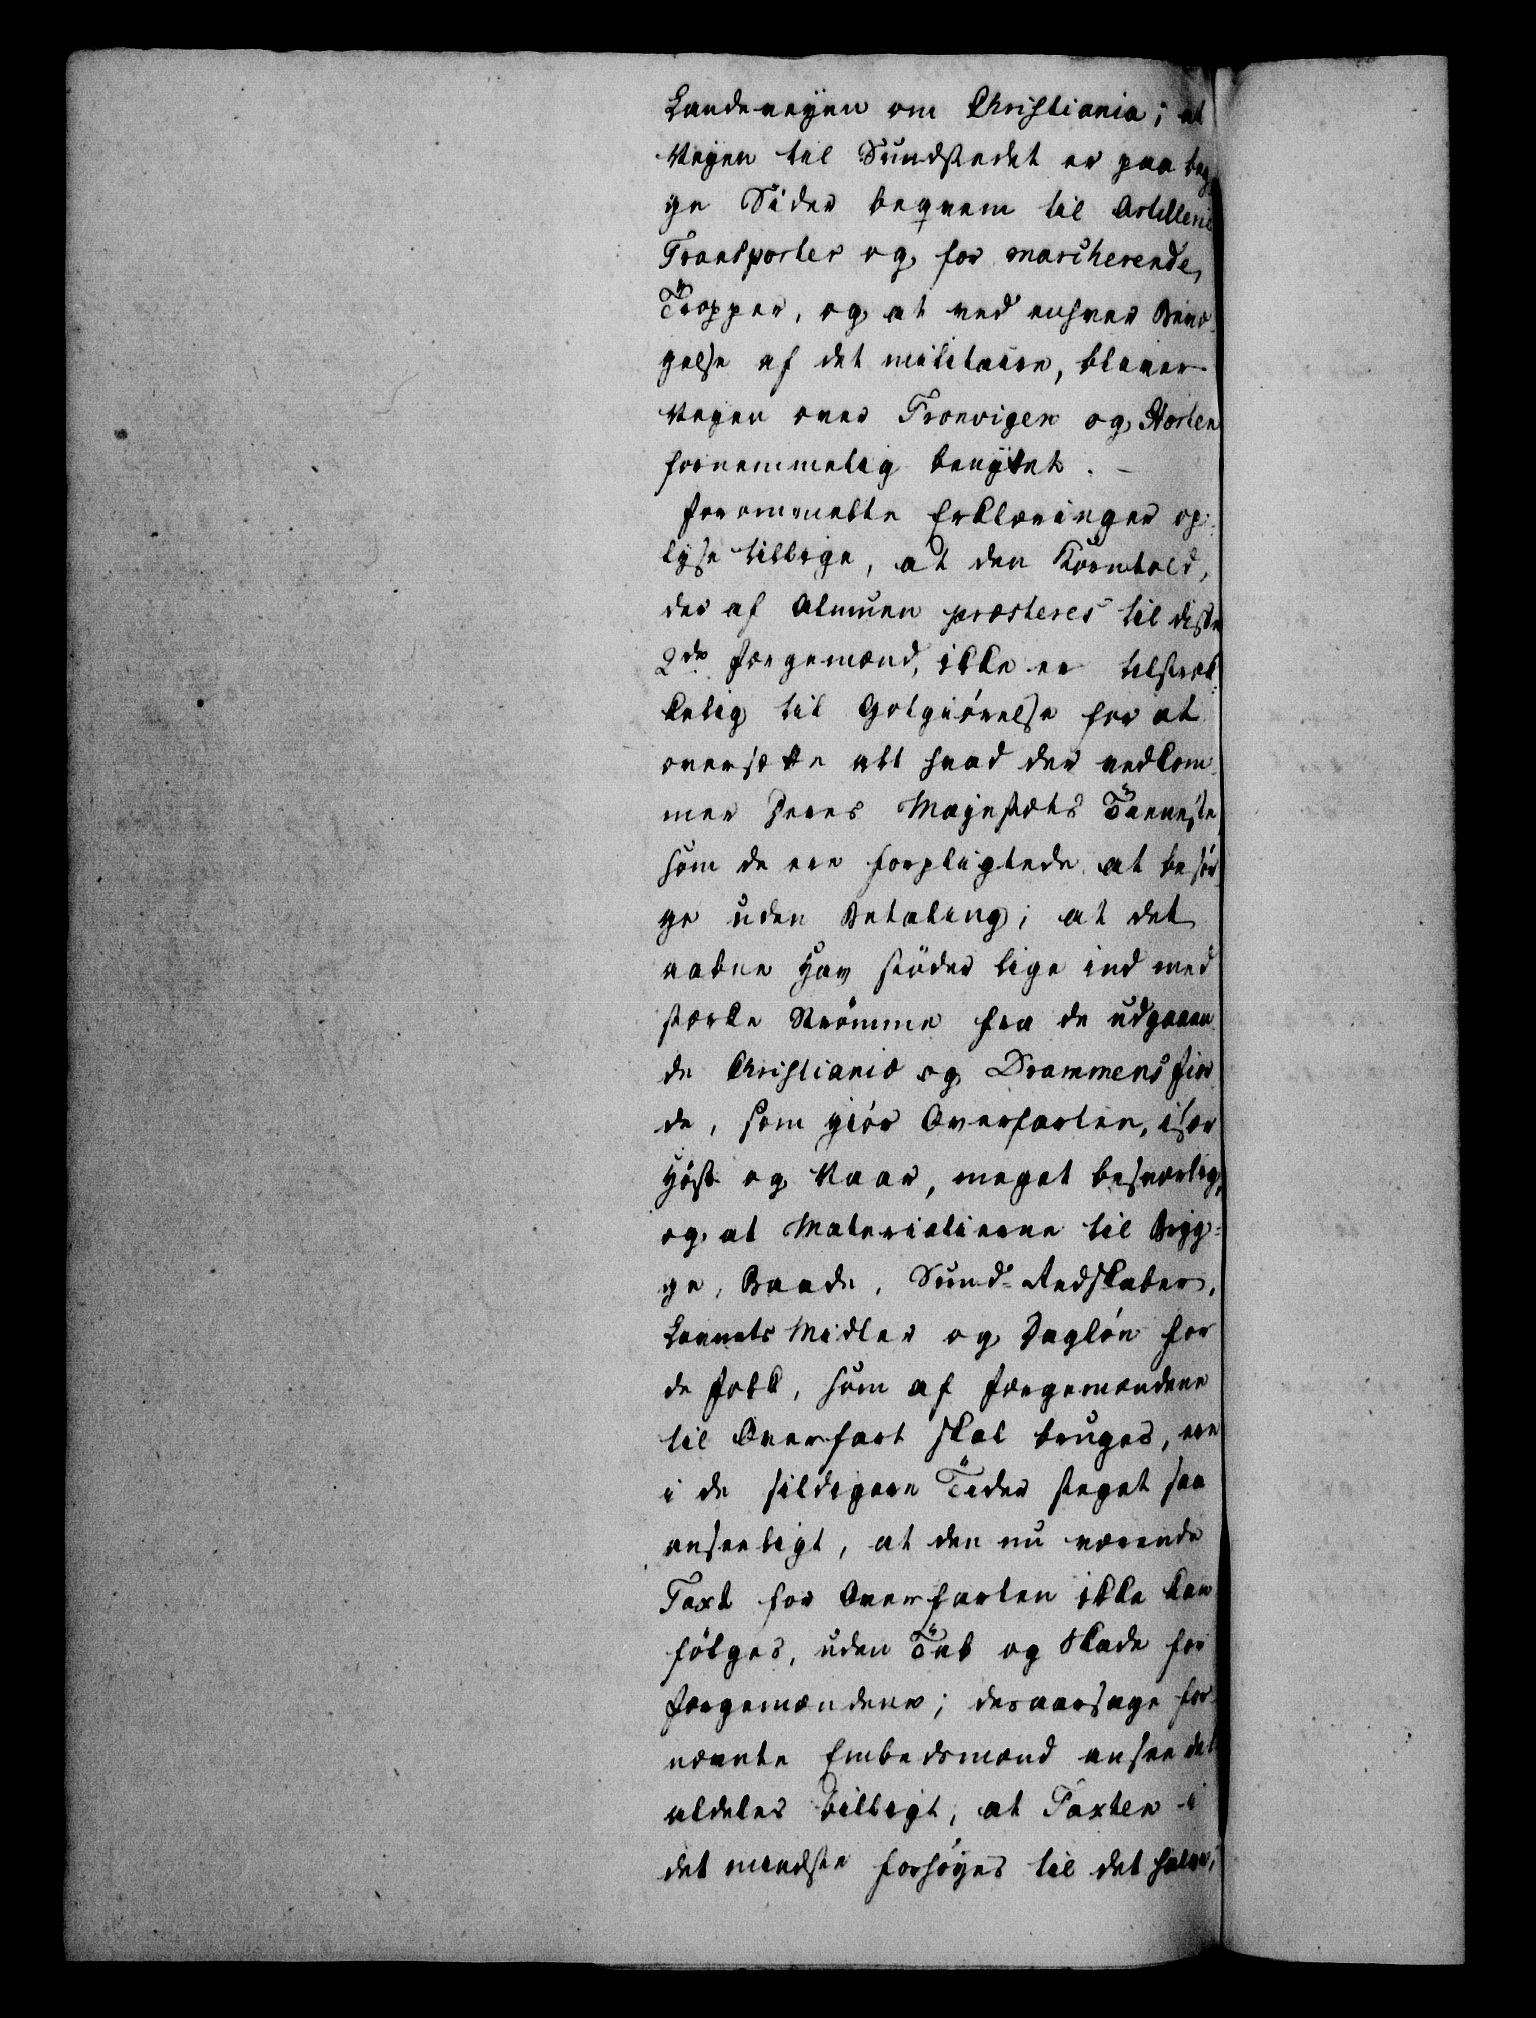 Landeveyen om Christiania; at
Veyen til Sundstedet er paa beg-
ge Sider beqvem til Artillerie
Transporter og for marcherende
Tropper, og at ved enhver Bevæ-
gelse af det militaire, bliver
Veyen over Tronvigen og Horten
fornemmelig benyttet. –
Forommelte Erklæringer op-
lyse tillige, at den Korntold,
der af Almuen præsteres til disse
2de Færgemænd, ikke er tilstræk-
kelig til Godtgiørelse for at
oversætte alt hvad der vedkom-
mer Deres Majestæts Tieneste,
som de ere forpligtede at besør-
ge uden Betaling; at det
aabne Hav støder lige ind med
stærke Strømme fra de udgaaen-
de Christiania og Drammens Fior-
de, som giør Overfarten, især
Høst og Vaar, meget besværlig,
og at Materialierne til Bryg-
ge, Baade, Sund-Redskaber,
Levnets Midler og Dagløn for
de Folk, som af Færgemændene
til Overfart skal bruges, ere
i de sildigere Tider steget saa
anseeligt, at den nu værende
Taxt for Overfarten ikke kan
følges, uden Tab og Skade for
Færgemændene; desaarsage for-
nævnte Embedsmænd ansee det
aldeles billigt, at Taxten i
det mindste forhøyes til det halve,